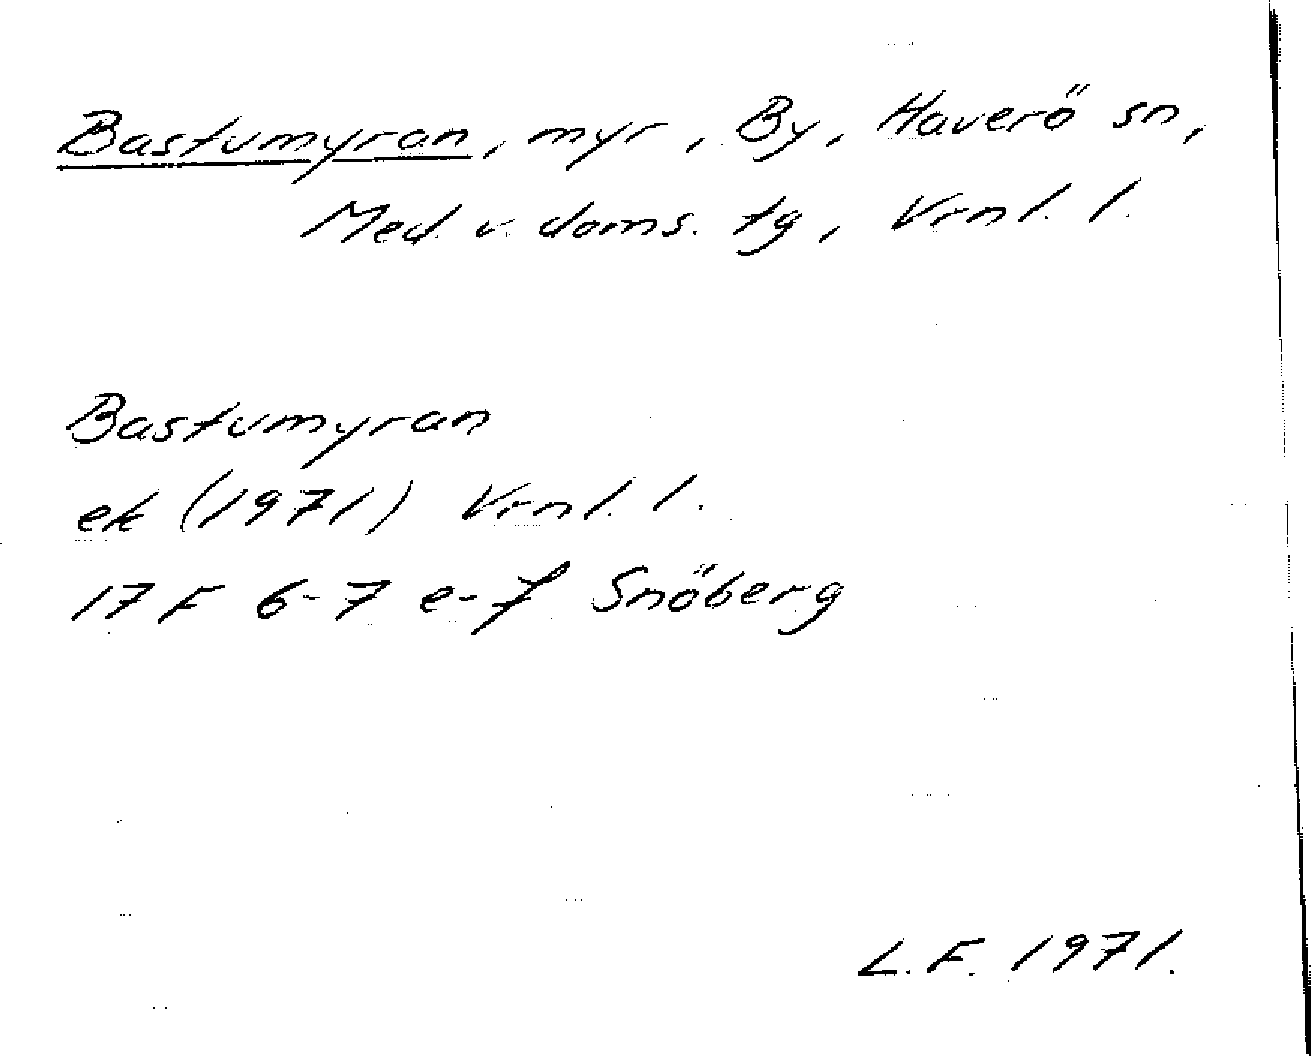 Bastumyran, myr, By, Haverö sn,
Med. v. doms. tg, Vrnl. l.
Bastumyran
ek (1971) Vrnl. l.
17 F 6-7 e-f Snöberg
L. F. 1971.